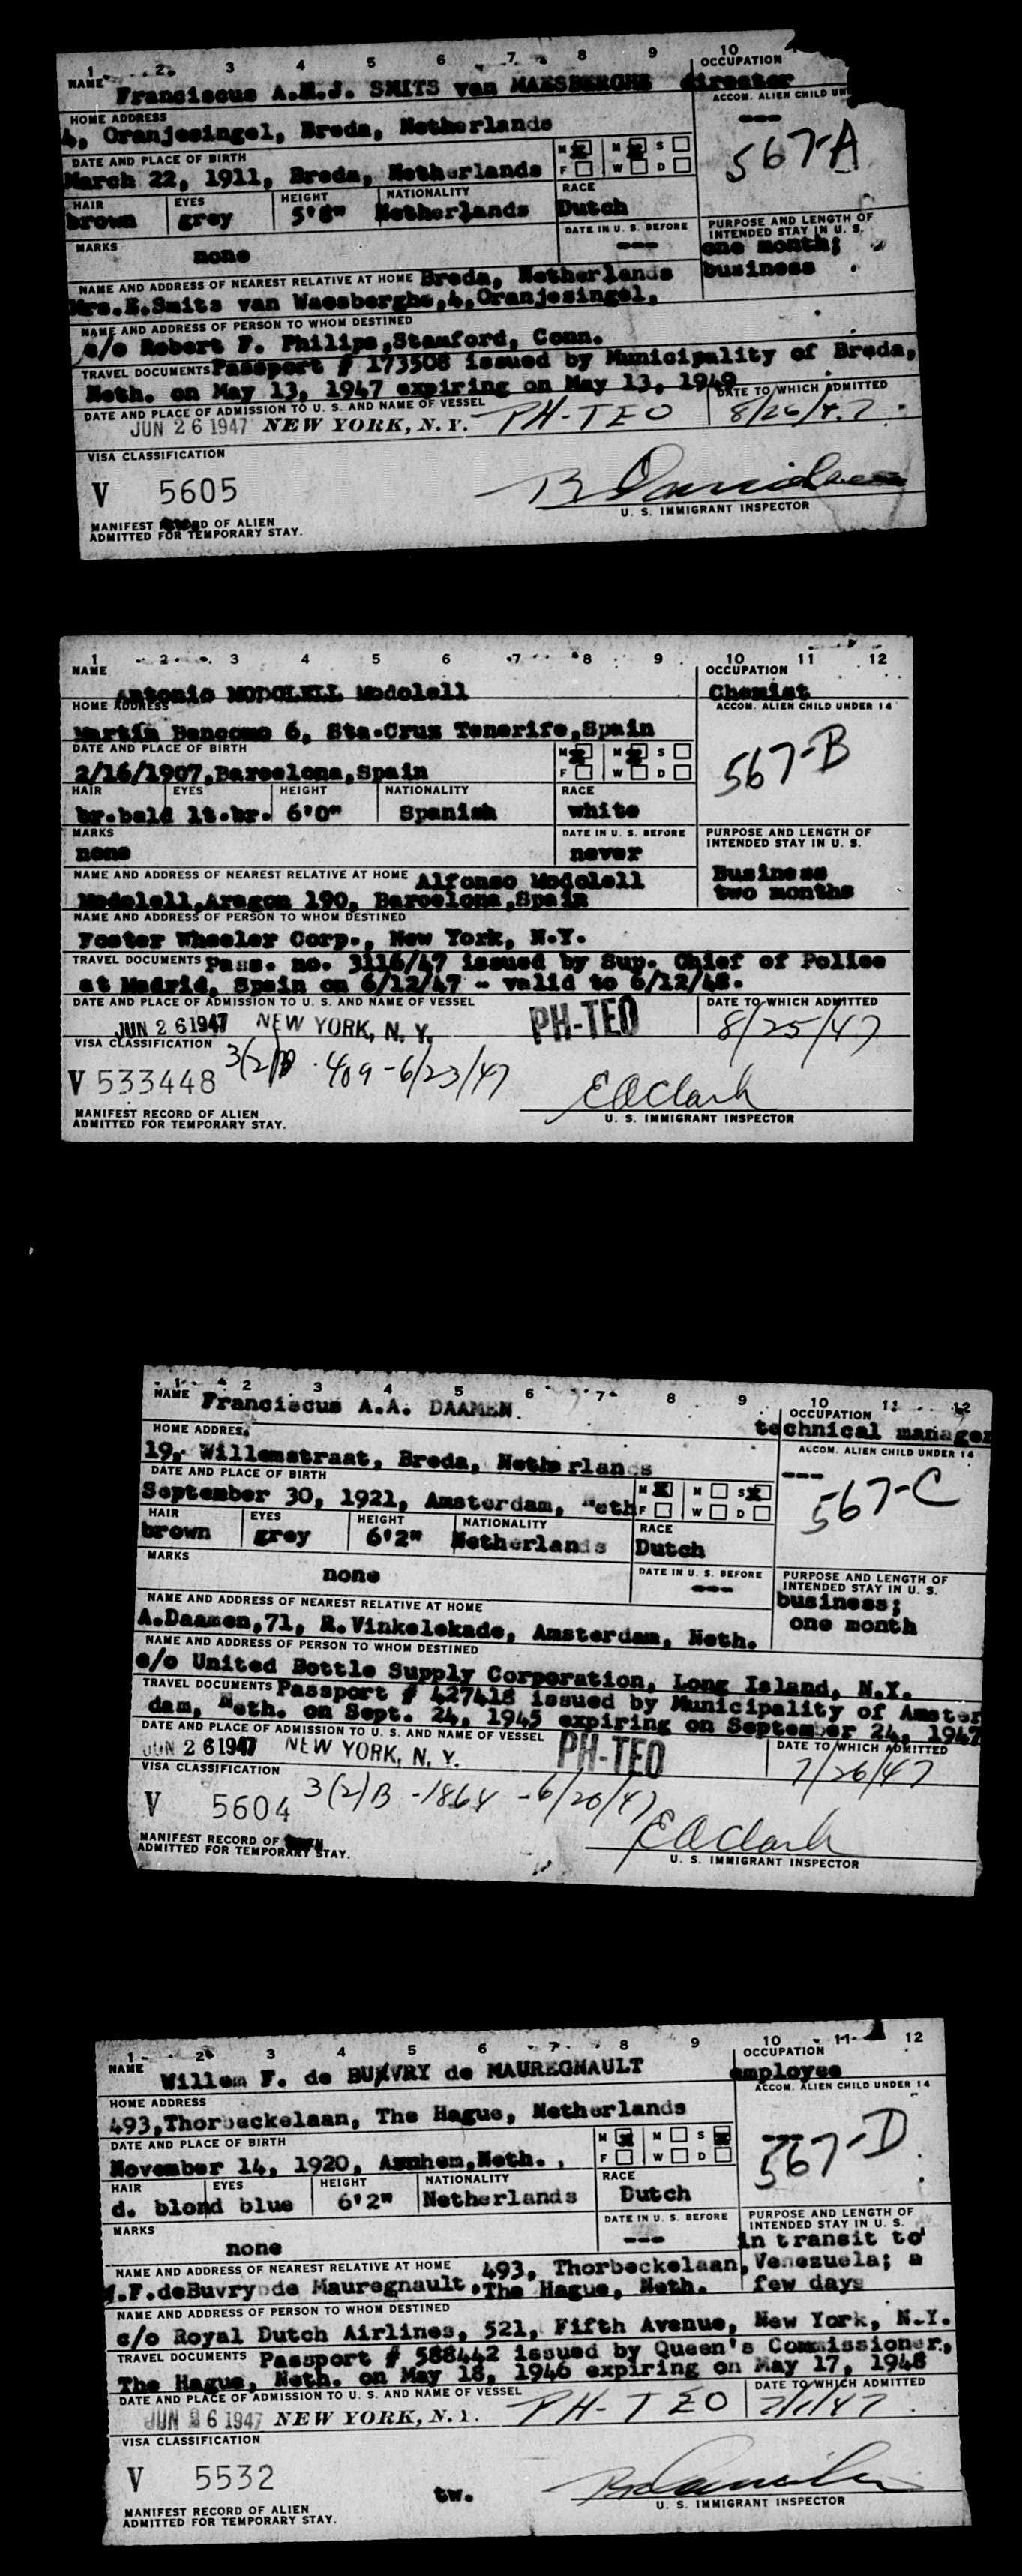 1 2 3 4 5 6 7 8 9 10
NAME Franciscus A.M.J. SMITS van MAESBERGHE OCCUPATION director
HOME ADDRESS ACCOM. ALIEN CHILD UN
4, Oranjesingel, Breda, Netherlands ---
567-A
DATE AND PLACE OF BIRTH M F M S W D
March 22, 1911, Breda, Netherlands
HAIR EYES HEIGHT NATIONALITY RACE
brown grey 5'8" Netherlands Dutch
MARKS DATE IN U. S. BEFORE PURPOSE AND LENGTH OF INTENDED STAY IN U. S.
none --- one month; business
NAME AND ADDRESS OF NEAREST RELATIVE AT HOME Breda, Netherlands
Mrs.E.Smits van Waesberghe,4,Oranjesingel,
NAME AND ADDRESS OF PERSON TO WHOM DESTINED
c/o Robert F. Philips,Stamford, Conn.
TRAVEL DOCUMENTS Passport # 173508 issued by Municipality of Breda,
Neth. on May 13, 1947 expiring on May 13, 1949
DATE AND PLACE OF ADMISSION TO U. S. AND NAME OF VESSEL DATE TO WHICH ADMITTED
JUN 26 1947 NEW YORK, N. Y. PH-TEO 8/26/47
VISA CLASSIFICATION
V 5605
U. S. IMMIGRANT INSPECTOR
MANIFEST OF ALIEN
ADMITTED FOR TEMPORARY STAY.
1 2 3 4 5 6 7 8 9 10 11 12
NAME OCCUPATION
Antonio MODOLELL Modolell Chemist
HOME ADDRESS ACCOM. ALIEN CHILD UNDER 14
Martin Bencomo 6, Sta.Cruz Tenerife,Spain
567-B
DATE AND PLACE OF BIRTH M F M S W D
2/16/1907,Barcelona,Spain
HAIR EYES HEIGHT NATIONALITY RACE
br.bald lt.br. 6'0" Spanish white
MARKS DATE IN U. S. BEFORE PURPOSE AND LENGTH OF INTENDED STAY IN U. S.
none never Business two months
NAME AND ADDRESS OF NEAREST RELATIVE AT HOME Alfonso Modolell
Modolell,Aragon 190, Barcelona,Spain
NAME AND ADDRESS OF PERSON TO WHOM DESTINED
Foster Wheeler Corp., New York, N.Y.
TRAVEL DOCUMENTS Pass. no. 3116/47 issued by Sup. Chief of Police
at Madrid, Spain on 6/12/47 - valid to 6/12/48.
DATE AND PLACE OF ADMISSION TO U. S. AND NAME OF VESSEL DATE TO WHICH ADMITTED
JUN 26 1947 NEW YORK, N. Y. PH-TEO 8/25/47
VISA CLASSIFICATION 3(2)B 409 - 6/23/47
V 533448 EAClark
MANIFEST RECORD OF ALIEN U. S. IMMIGRANT INSPECTOR
ADMITTED FOR TEMPORARY STAY.
1 2 3 4 5 6 7 8 9 10 11 12
NAME Franciscus A.A. DAAMEN OCCUPATION
HOME ADDRES technical manager
19, Willemstraat, Breda, Netherlands ACCOM. ALIEN CHILD UNDER 14
---
567-C
DATE AND PLACE OF BIRTH M F M S W D
September 30, 1921, Amsterdam, Neth
HAIR EYES HEIGHT NATIONALITY RACE
brown grey 6'2" Netherlands Dutch
MARKS DATE IN U. S. BEFORE PURPOSE AND LENGTH OF INTENDED STAY IN U. S.
none --- business; one month
NAME AND ADDRESS OF NEAREST RELATIVE AT HOME
A.Daamen,71, R.Vinkelekade, Amsterdam, Neth.
NAME AND ADDRESS OF PERSON TO WHOM DESTINED
c/o United Bottle Supply Corporation, Long Island, N.Y.
TRAVEL DOCUMENTS Passport # 427418 issued by Municipality of Amster
dam, Neth. on Sept. 24, 1945 expiring on September 24, 1947
DATE AND PLACE OF ADMISSION TO U. S. AND NAME OF VESSEL DATE TO WHICH ADMITTED
JUN 26 1947 NEW YORK, N. Y. PH-TEO 7/26/47
VISA CLASSIFICATION 3(2)B - 1864 - 6/20/47
V 5604 EAClark
MANIFEST RECORD OF U. S. IMMIGRANT INSPECTOR
ADMITTED FOR TEMPORARY STAY.
1 2 3 4 5 6 7 8 9 10 11 12
NAME Willem F. de BUVRY de MAUREGNAULT OCCUPATION employee
HOME ADDRESS ACCOM. ALIEN CHILD UNDER 14
493,Thorbeckelaan, The Hague, Netherlands ---
567-D
DATE AND PLACE OF BIRTH M F M S W D
November 14, 1920, Arnhem,Neth.,
HAIR EYES HEIGHT NATIONALITY RACE
d. blond blue 6'2" Netherlands Dutch
MARKS DATE IN U. S. BEFORE PURPOSE AND LENGTH OF INTENDED STAY IN U. S.
none --- in transit to Venezuela; a few days
NAME AND ADDRESS OF NEAREST RELATIVE AT HOME 493, Thorbeckelaan,
.F.deBuvry de Mauregnault,The Hague, Neth.
NAME AND ADDRESS OF PERSON TO WHOM DESTINED
c/o Royal Dutch Airlines, 521, Fifth Avenue, New York, N.Y.
TRAVEL DOCUMENTS Passport # 588442 issued by Queen's Commissioner.,
The Hague, Neth. on May 18, 1946 expiring on May 17, 1948
DATE AND PLACE OF ADMISSION TO U. S. AND NAME OF VESSEL DATE TO WHICH ADMITTED
JUN 26 1947 NEW YORK, N. Y. PH-TEO 7/1/47
VISA CLASSIFICATION
V 5532 tw.
U. S. IMMIGRANT INSPECTOR
MANIFEST RECORD OF ALIEN
ADMITTED FOR TEMPORARY STAY.